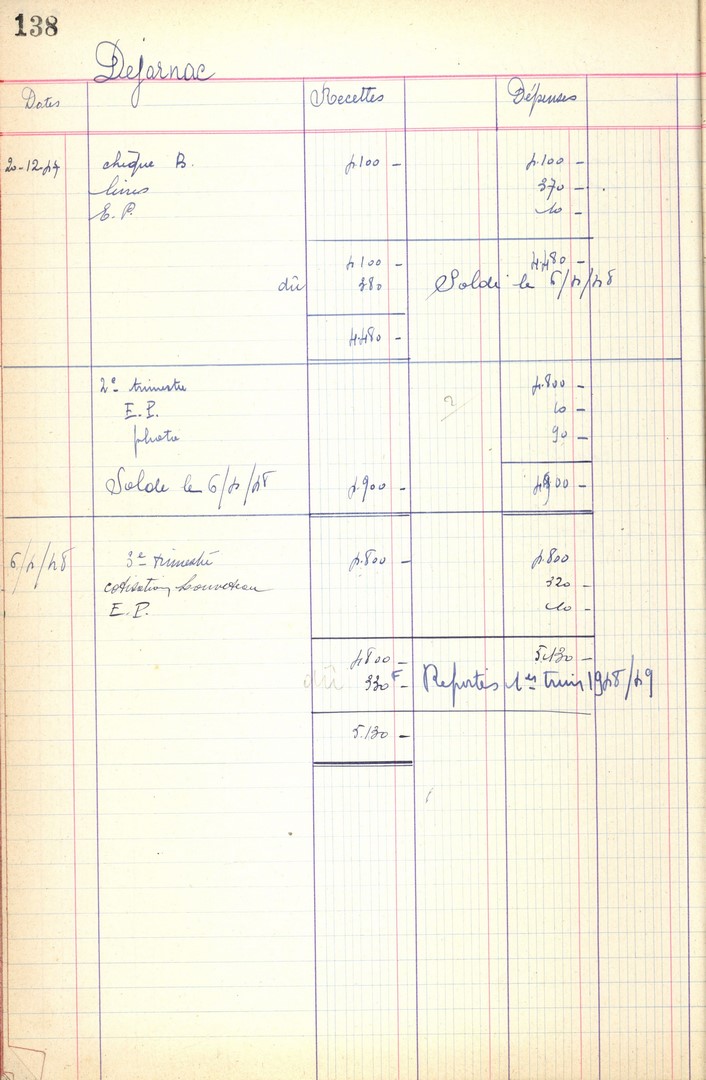 138
Dejarnac
Dates Recettes Dépenses
20-12-47 chèque B. 4.100 - 4.100 -
livres 370 -
E.P. 10 -
4.100 - 4.480 -
dû 380 Soldé le 6/4/48
4.480 -
2e trimestre 4.800 -
E.P. 10 -
photo 90 -
Solde le 6/4/48 4.900 - 4.900 -
6/4/48 3e trimestre 4.800 - 4.800
cotisation Louveteau 320 -
E.P. 10 -
4.800 - 5.130 -
dû 330F - Reportés 1er trim 1948/49
5.130 -